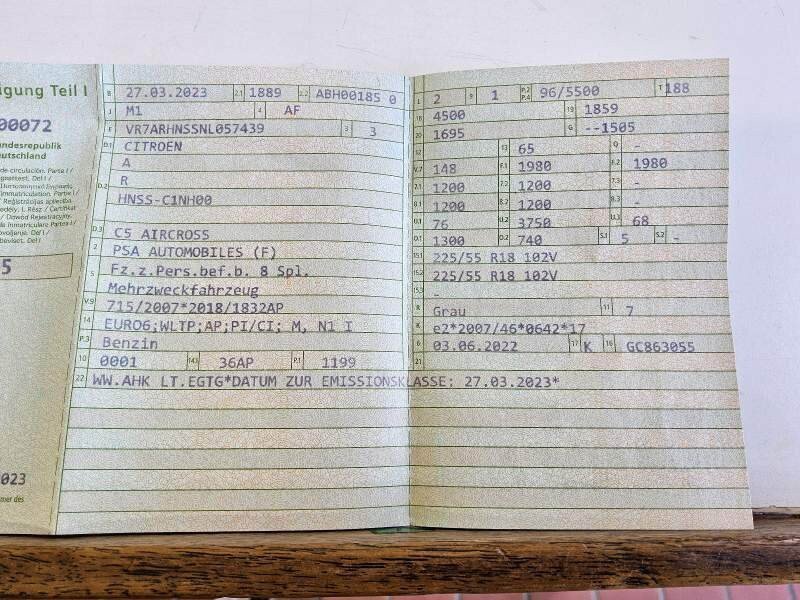 igung Teil I
00072
undesrepublik
eutschland
B 27.03.2023 2.1 1889 2.2 ABH00185 0
J M1 4 AF
E VR7ARHNSSNL057439 3 3
D.1 CITROEN
A
D.2 R
HNSS-C1NH00
D.3 C5 AIRCROSS
2 PSA AUTOMOBILES (F)
5 Fz.z.Pers.bef.b. 8 Spl.
Mehrzweckfahrzeug
V.9 715/2007*2018/1832AP
14 EURO6;WLTP;AP;PI/CI; M, N1 I
P.3 Benzin
10 0001 14.1 36AP P.1 1199
22 WW.AHK LT.EGTG*DATUM ZUR EMISSIONSKLASSE: 27.03.2023*
5
023
mer des
L 2 9 1 P.2 P.4 96/5500 T 188
18 4500 19 1859
20 1695 G --1505
12 13 65 Q -
V.7 148 F.1 1980 F.2 1980
7.1 1200 7.2 1200 7.3 -
8.1 1200 8.2 1200 8.3 -
U.1 76 U.2 3750 U.3 68
O.1 1300 O.2 740 S.1 5 S.2 -
15.1 225/55 R18 102V
15.2 225/55 R18 102V
15.3 -
R Grau 11 7
K e2*2007/46*0642*17
6 03.06.2022 17 K 16 GC863055
21